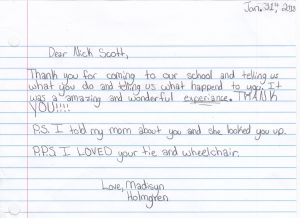 Jan. 31st, 2013
Dear Nick Scott,
Thank you for coming to our school and telling us
what you do and telling us what happend to you. It
was a amazing and wonderful experiance. THANK
YOU!!!!
P.S. I told my mom about you and she looked you up.
P.P.S. I LOVED your tie and wheelchair.
Love, Madisyn
Holmgren